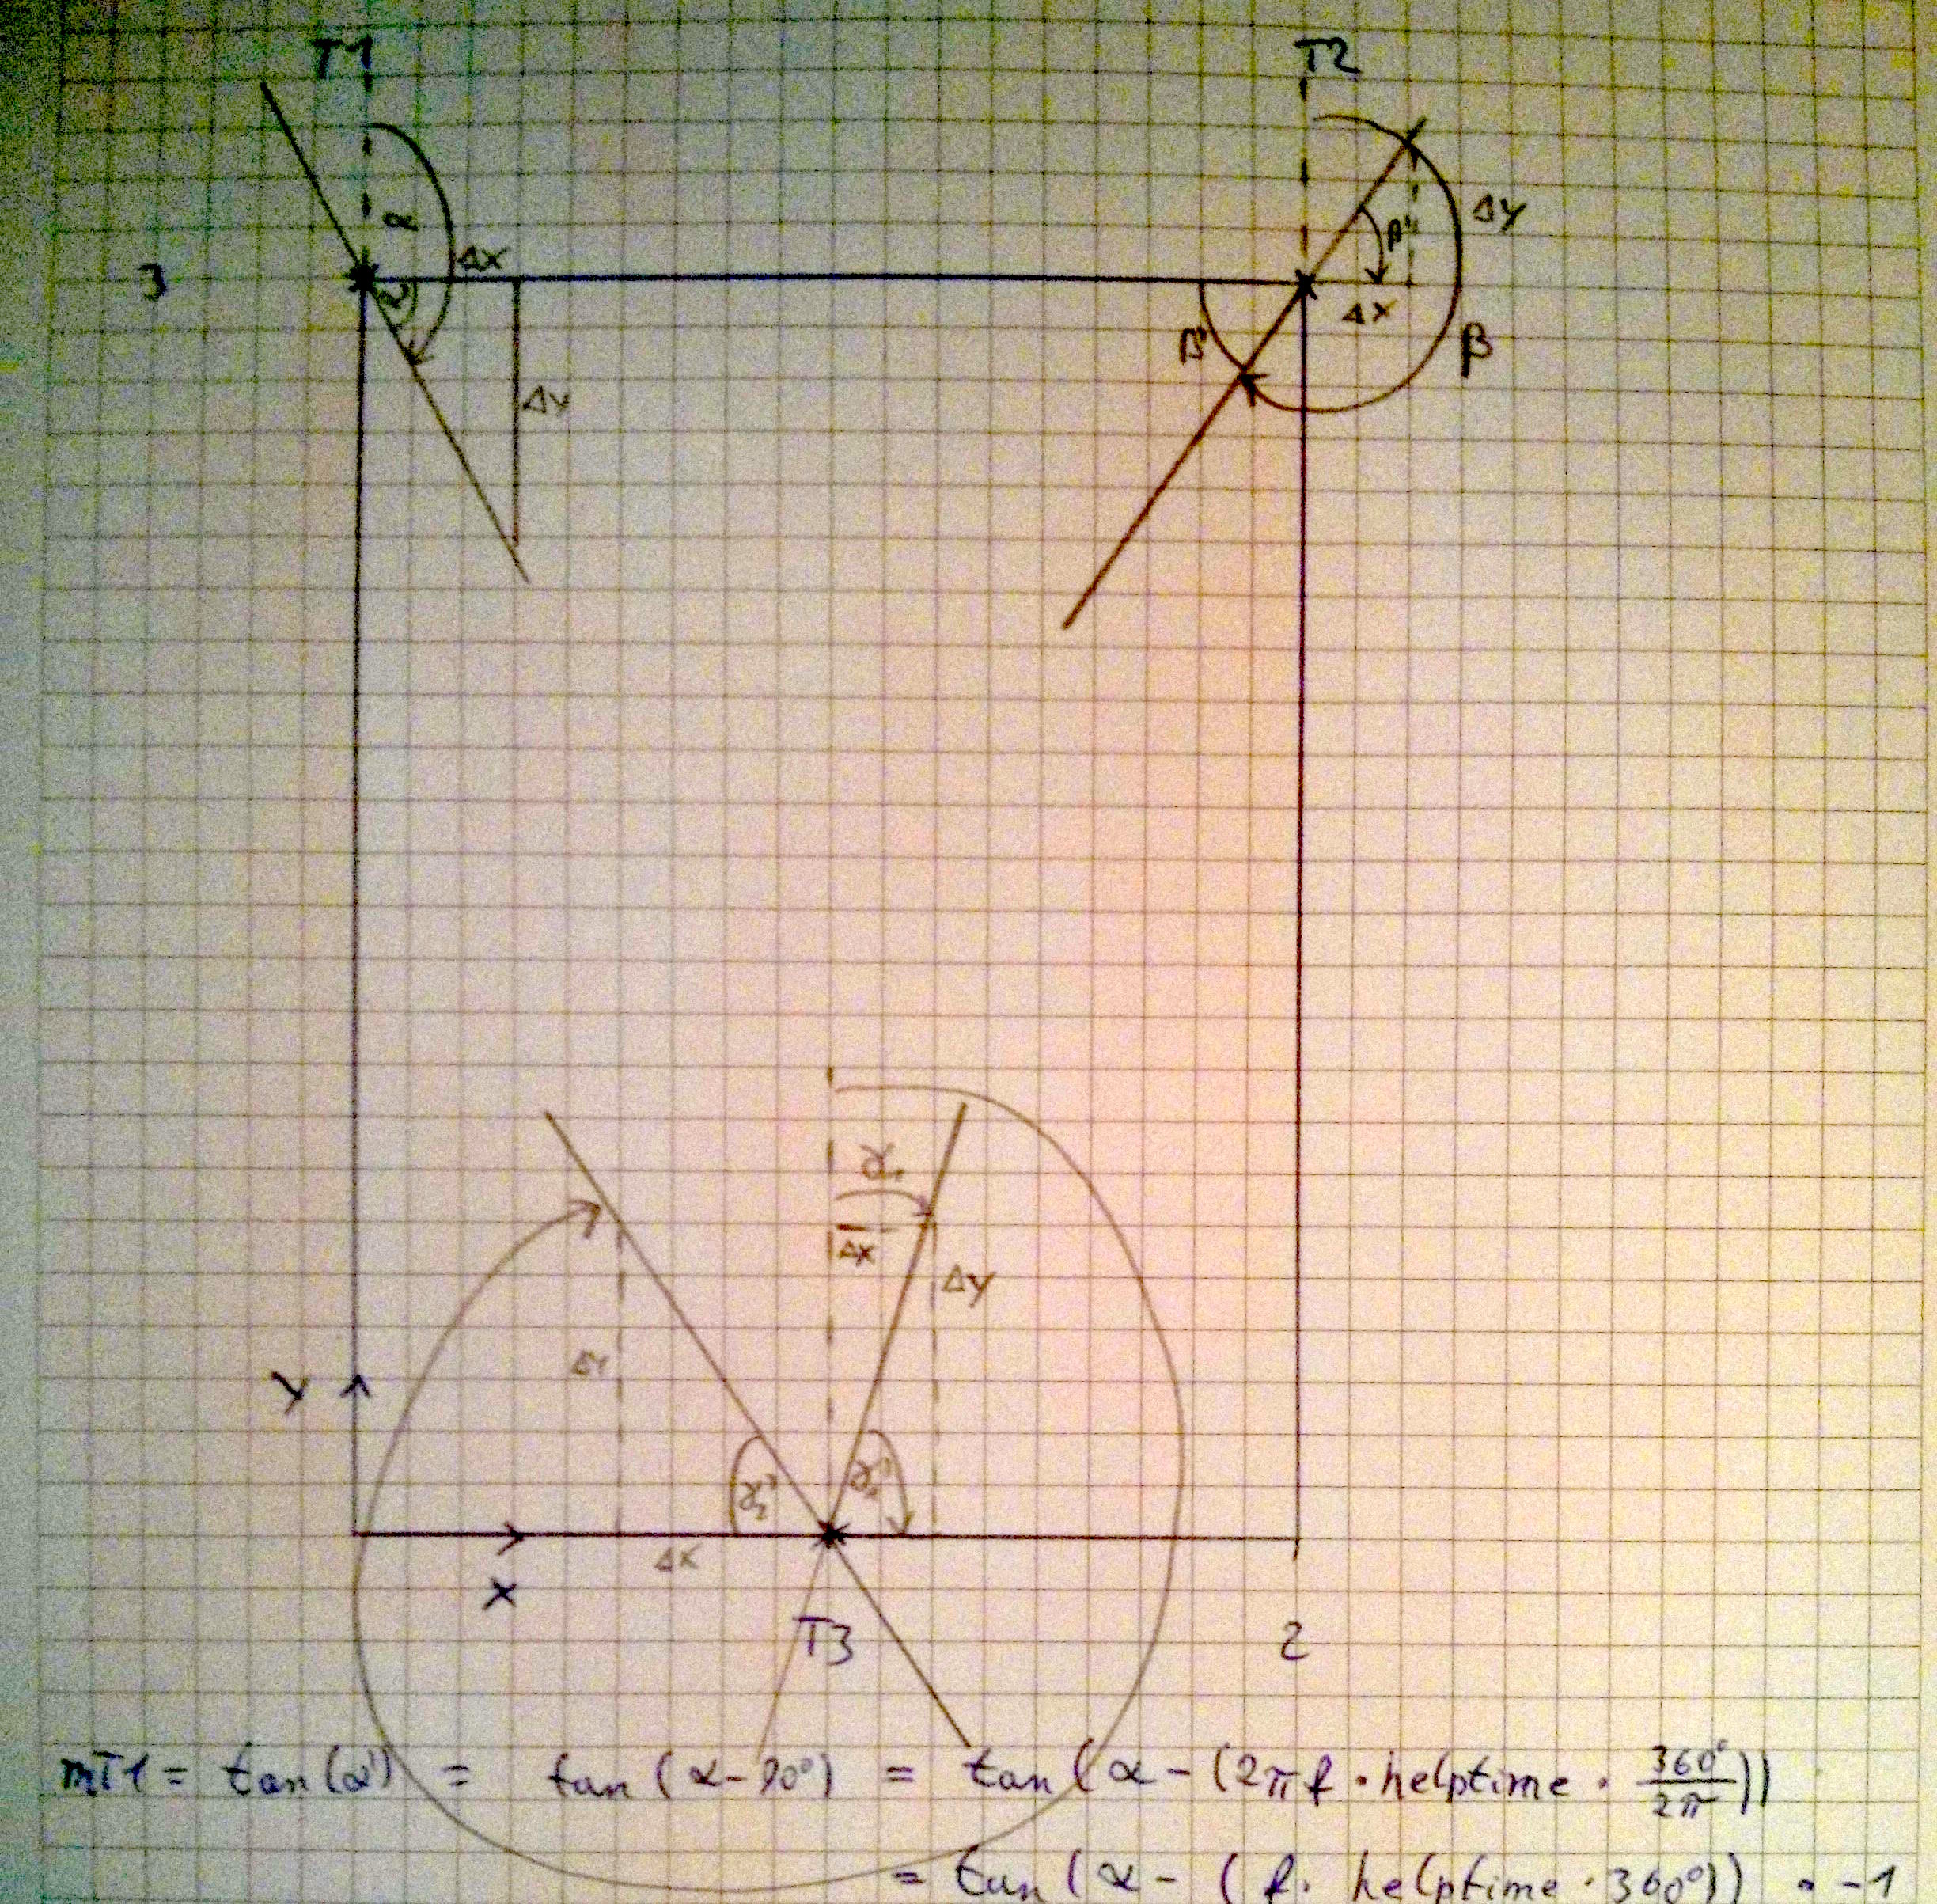 T1
T2
α
Δx
Δy
β''
3
α'
Δx
β'
β
Δy
γ₁
Δx
Δy
Δy
y
γ₂'
γ₁'
Δx
x
T3
2
mT1 = tan(α') = tan(α-90°) = tan(α-(2πf·helptime·360°/2π))
= tan(α-(f·helptime·360°))·-1